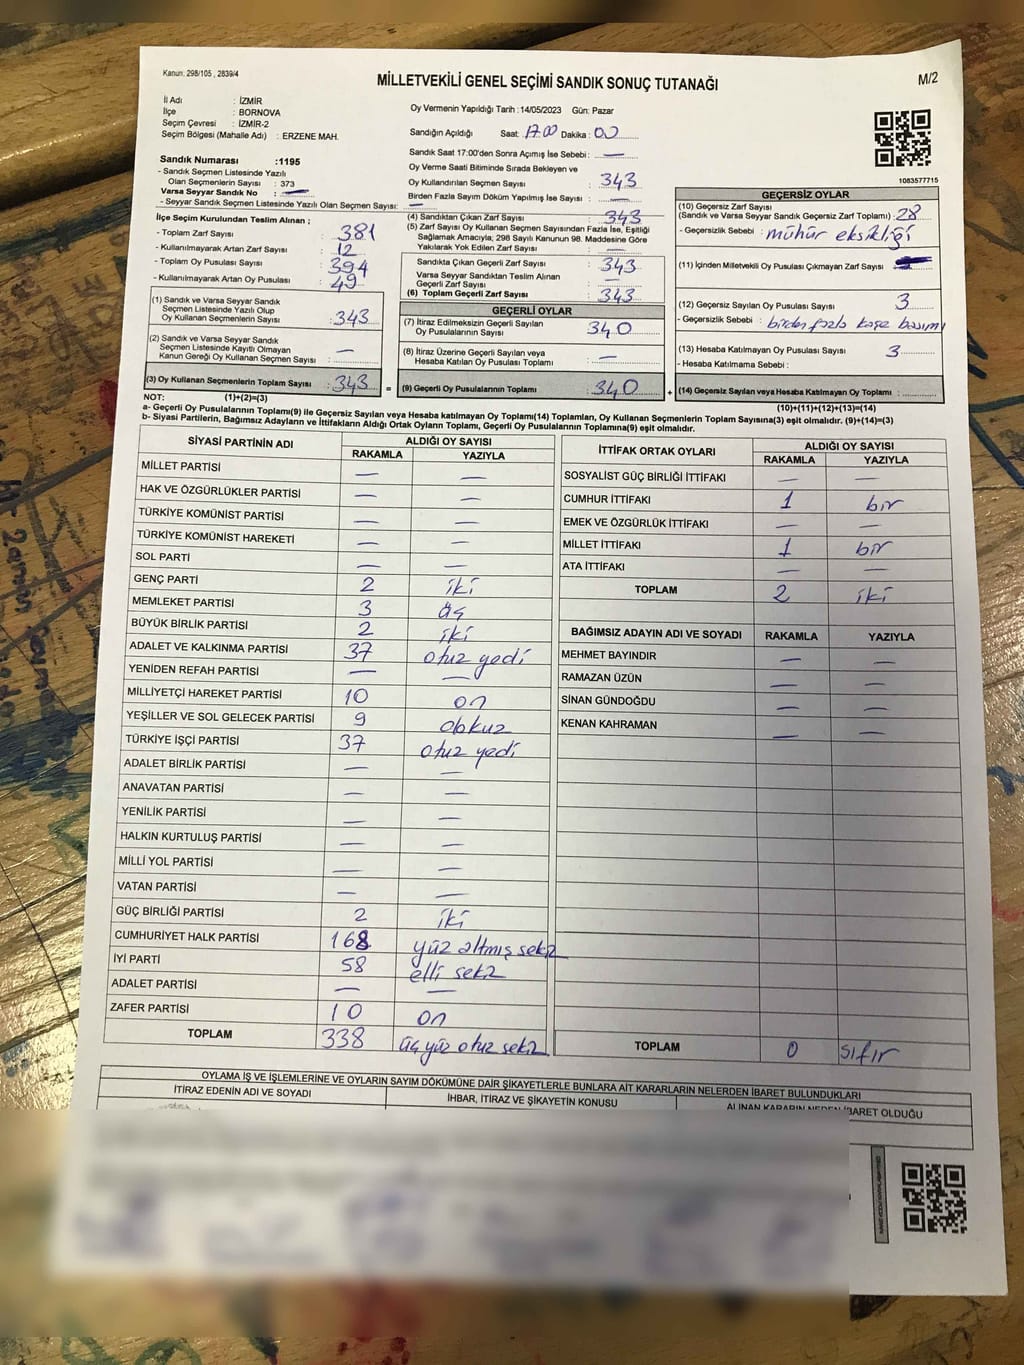 Kanun: 298/105 , 2839/4
MİLLETVEKİLİ GENEL SEÇİMİ SANDIK SONUÇ TUTANAĞI
M/2
İl Adı : İZMİR
İlçe : BORNOVA
Seçim Çevresi : İZMİR-2
Seçim Bölgesi (Mahalle Adı) : ERZENE MAH.
Oy Vermenin Yapıldığı Tarih :14/05/2023 Gün: Pazar
Sandığın Açıldığı Saat: 17.00 Dakika: 00
Sandık Saat 17:00'den Sonra Açımış İse Sebebi: —
Sandık Numarası :1195
- Sandık Seçmen Listesinde Yazılı
Olan Seçmenlerin Sayısı : 373
Varsa Seyyar Sandık No : —
- Seyyar Sandık Seçmen Listesinde Yazılı Olan Seçmen Sayısı: —
Oy Verme Saati Bitiminde Sırada Bekleyen ve
Oy Kullandırılan Seçmen Sayısı : 343
Birden Fazla Sayım Döküm Yapılmış İse Sayısı: —
İlçe Seçim Kurulundan Teslim Alınan ;
- Toplam Zarf Sayısı : 381
- Kullanılmayarak Artan Zarf Sayısı : 12
- Toplam Oy Pusulası Sayısı : 394
- Kullanılmayarak Artan Oy Pusulası : 49
(1) Sandık ve Varsa Seyyar Sandık
Seçmen Listesinde Yazılı Olup
Oy Kullanan Seçmenlerin Sayısı : 343
(2) Sandık ve Varsa Seyyar Sandık
Seçmen Listesinde Kayıtlı Olmayan
Kanun Gereği Oy Kullanan Seçmen Sayısı : —
(3) Oy Kullanan Seçmenlerin Toplam Sayısı : 343 =
(4) Sandıktan Çıkan Zarf Sayısı : 343
(5) Zarf Sayısı Oy Kullanan Seçmen Sayısından Fazla İse, Eşitliği
Sağlamak Amacıyla, 298 Sayılı Kanunun 98. Maddesine Göre
Yakılarak Yok Edilen Zarf Sayısı : —
Sandıkta Çıkan Geçerli Zarf Sayısı : 343
Varsa Seyyar Sandıktan Teslim Alınan
Geçerli Zarf Sayısı : —
(6) Toplam Geçerli Zarf Sayısı : 343
GEÇERLİ OYLAR
(7) İtiraz Edilmeksizin Geçerli Sayılan
Oy Pusulalarının Sayısı : 340
(8) İtiraz Üzerine Geçerli Sayılan veya
Hesaba Katılan Oy Pusulası Toplamı : —
(9) Geçerli Oy Pusulalarının Toplamı : 340 +
1083577715
GEÇERSİZ OYLAR
(10) Geçersiz Zarf Sayısı
(Sandık ve Varsa Seyyar Sandık Geçersiz Zarf Toplamı) : 28
- Geçersizlik Sebebi : mühür eksikliği
(11) İçinden Milletvekili Oy Pusulası Çıkmayan Zarf Sayısı :
(12) Geçersiz Sayılan Oy Pusulası Sayısı : 3
- Geçersizlik Sebebi : birden fazla kaşe basımı
(13) Hesaba Katılmayan Oy Pusulası Sayısı : 3
- Hesaba Katılmama Sebebi :
(14) Geçersiz Sayılan veya Hesaba Katılmayan Oy Toplamı :
NOT: (1)+(2)=(3)
(10)+(11)+(12)+(13)=(14)
a- Geçerli Oy Pusulalarının Toplamı(9) ile Geçersiz Sayılan veya Hesaba katılmayan Oy Toplamı(14) Toplamları, Oy Kullanan Seçmenlerin Toplam Sayısına(3) eşit olmalıdır. (9)+(14)=(3)
b- Siyasi Partilerin, Bağımsız Adayların ve İttifakların Aldığı Ortak Oyların Toplamı, Geçerli Oy Pusulalarının Toplamına(9) eşit olmalıdır.
SİYASİ PARTİNİN ADI ALDIĞI OY SAYISI
RAKAMLA YAZIYLA
MİLLET PARTİSİ — —
HAK VE ÖZGÜRLÜKLER PARTİSİ — —
TÜRKİYE KOMÜNİST PARTİSİ — —
TÜRKİYE KOMÜNİST HAREKETİ — —
SOL PARTİ — —
GENÇ PARTİ 2 iki
MEMLEKET PARTİSİ 3 üç
BÜYÜK BİRLİK PARTİSİ 2 iki
ADALET VE KALKINMA PARTİSİ 37 otuz yedi
YENİDEN REFAH PARTİSİ — —
MİLLİYETÇİ HAREKET PARTİSİ 10 on
YEŞİLLER VE SOL GELECEK PARTİSİ 9 dokuz
TÜRKİYE İŞÇİ PARTİSİ 37 otuz yedi
ADALET BİRLİK PARTİSİ — —
ANAVATAN PARTİSİ — —
YENİLİK PARTİSİ — —
HALKIN KURTULUŞ PARTİSİ — —
MİLLİ YOL PARTİSİ — —
VATAN PARTİSİ — —
GÜÇ BİRLİĞİ PARTİSİ 2 iki
CUMHURİYET HALK PARTİSİ 168 yüz altmış sekiz
İYİ PARTİ 58 elli sekiz
ADALET PARTİSİ — —
ZAFER PARTİSİ 10 on
TOPLAM 338 üç yüz otuz sekiz
İTTİFAK ORTAK OYLARI ALDIĞI OY SAYISI
RAKAMLA YAZIYLA
SOSYALİST GÜÇ BİRLİĞİ İTTİFAKI — —
CUMHUR İTTİFAKI 1 bir
EMEK VE ÖZGÜRLÜK İTTİFAKI — —
MİLLET İTTİFAKI 1 bir
ATA İTTİFAKI — —
TOPLAM 2 iki
BAĞIMSIZ ADAYIN ADI VE SOYADI RAKAMLA YAZIYLA
MEHMET BAYINDIR — —
RAMAZAN ÜZÜN — —
SİNAN GÜNDOĞDU — —
KENAN KAHRAMAN — —
TOPLAM 0 sıfır
OYLAMA İŞ VE İŞLEMLERİNE VE OYLARIN SAYIM DÖKÜMÜNE DAİR ŞİKAYETLERLE BUNLARA AİT KARARLARIN NELERDEN İBARET BULUNDUKLARI
İTİRAZ EDENİN ADI VE SOYADI İHBAR, İTİRAZ VE ŞİKAYETİN KONUSU ALINAN KARARIN NEDEN İBARET OLDUĞU